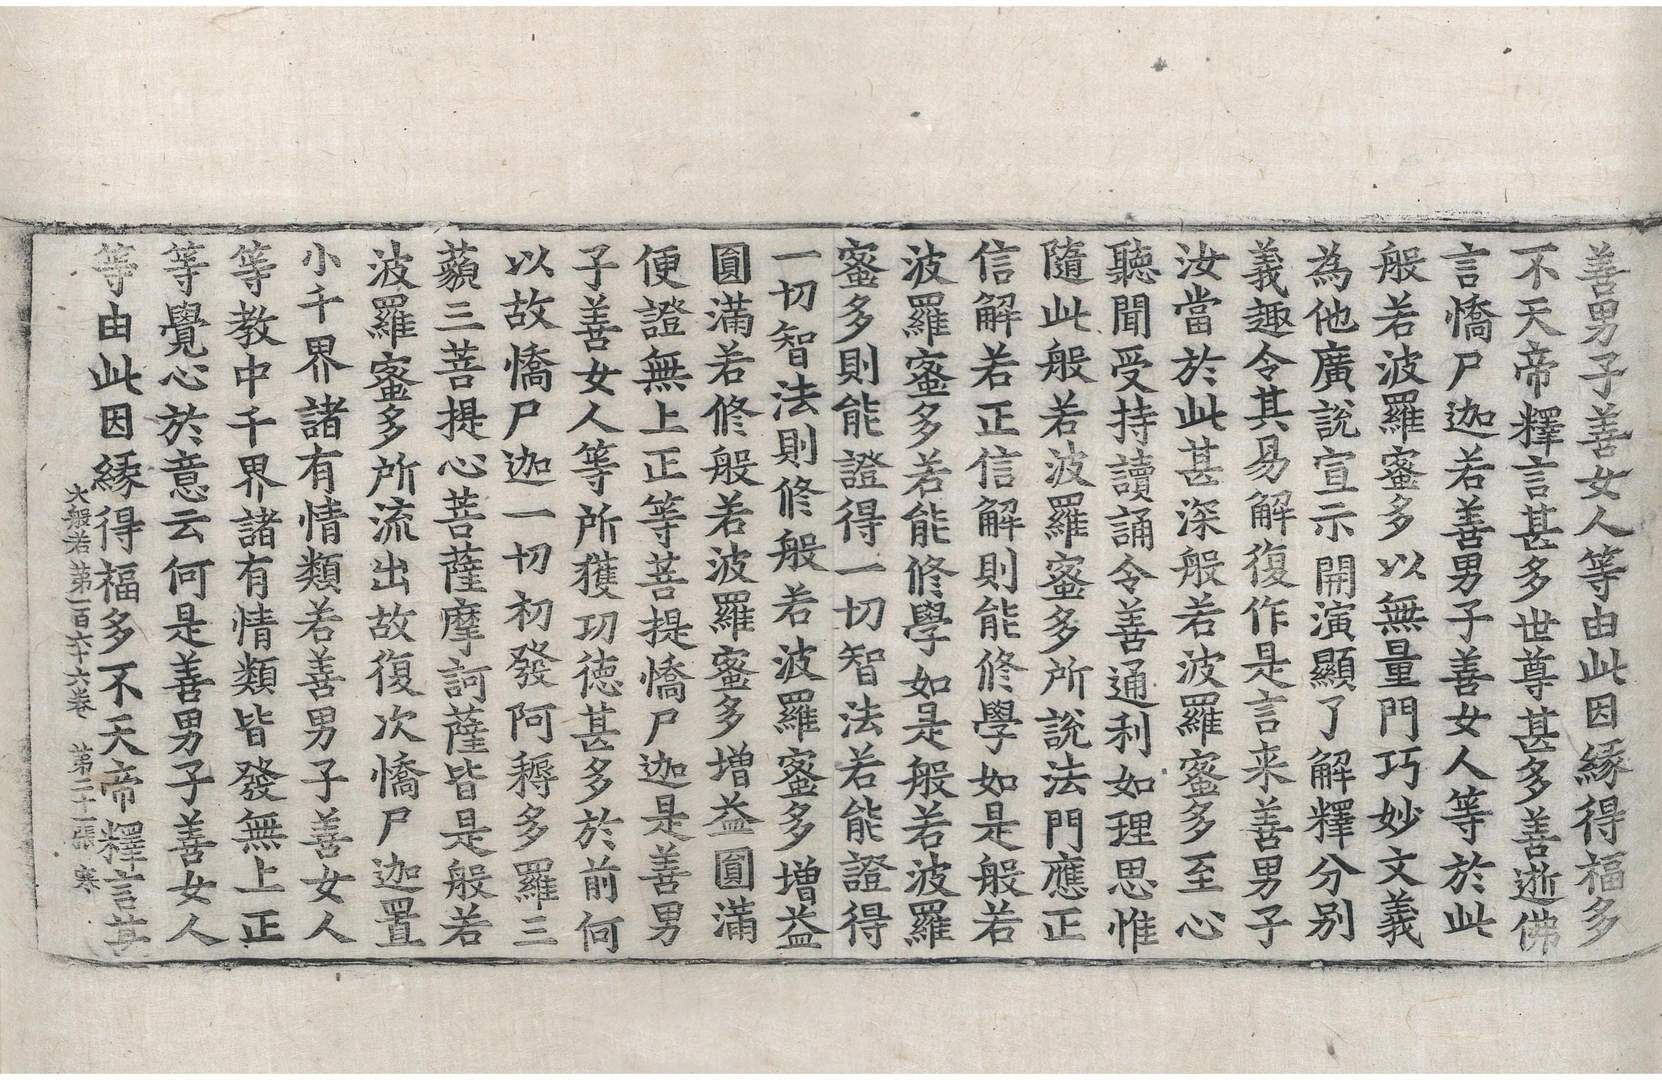 善男子善女人等由此因緣得福多
不天帝釋言甚多世尊甚多善逝佛
言憍尸迦若善男子善女人等於此
般若波羅蜜多以無量門巧妙文義
為他廣說宣示開演顯了解釋分別
義趣令其易解復作是言来善男子
汝當於此甚深般若波羅蜜多至心
聽聞受持讀誦令善通利如理思惟
隨此般若波羅蜜多所說法門應正
信解若正信解則能修學如是般若
波羅蜜多若能修學如是般若波羅
蜜多則能證得一切智法若能證得
一切智法則修般若波羅蜜多增益
圓滿若修般若波羅蜜多增益圓滿
便證無上正等菩提憍尸迦是善男
子善女人等所獲功德甚多於前何
以故憍尸迦一切初發阿耨多羅三
藐三菩提心菩薩摩訶薩皆是般若
波羅蜜多所流出故復次憍尸迦置
小千界諸有情類若善男子善女人
等教中千界諸有情類皆發無上正
等覺心於意云何是善男子善女人
等由此因緣得福多不天帝釋言甚
大般若第一百六十六卷 第二十一張 寒